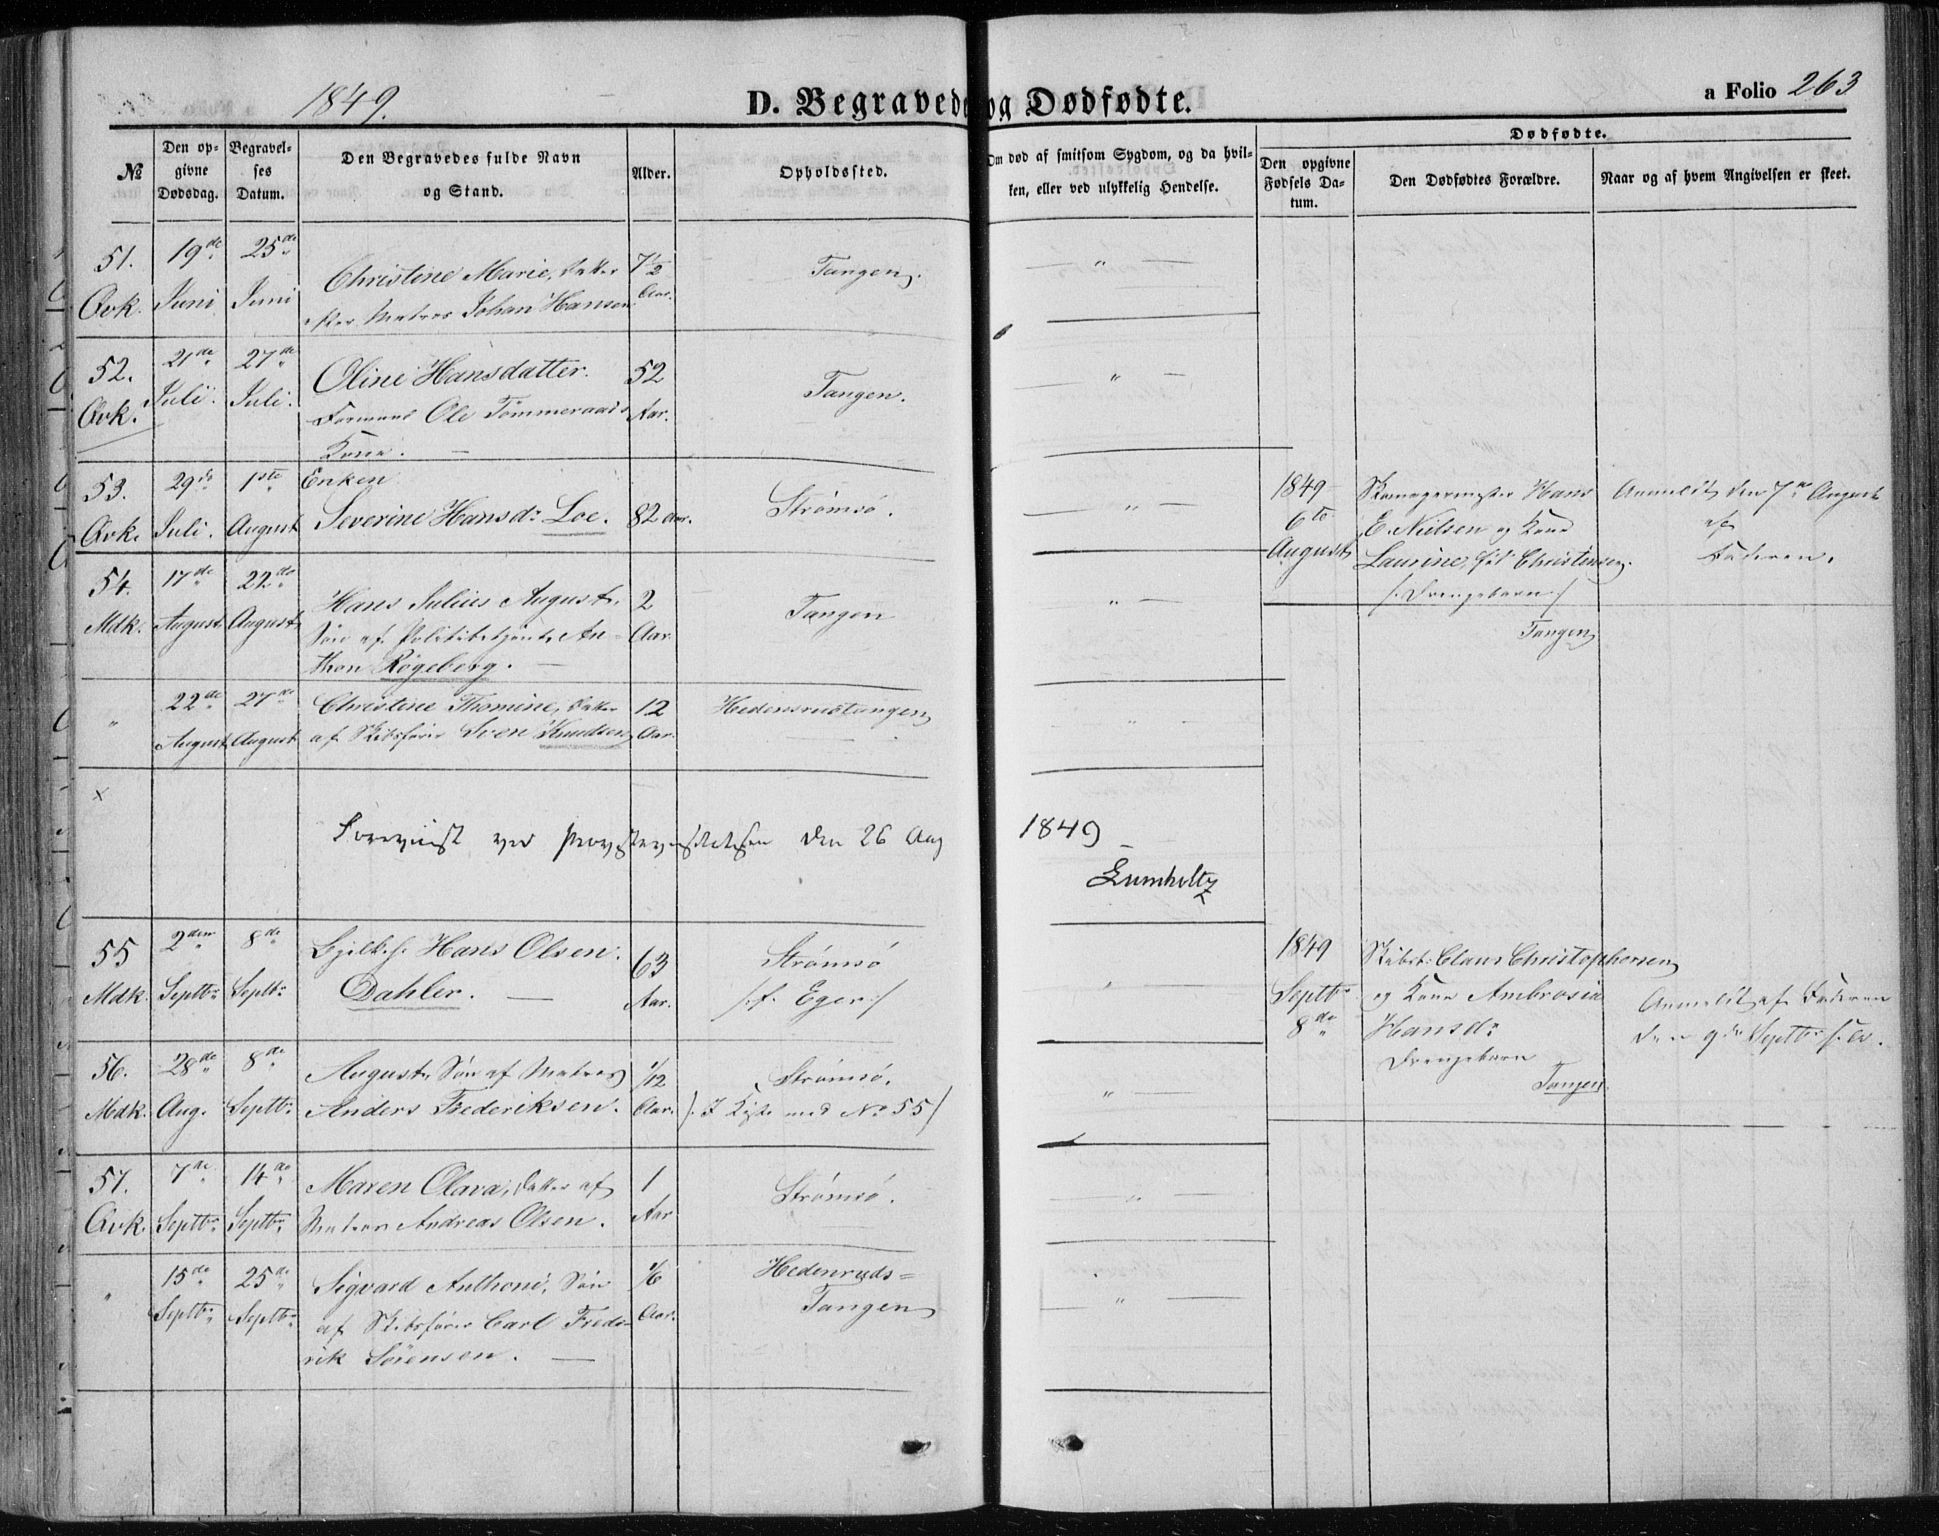 1849.
D. Begravede og Dødfødte.
a Folio 263
№
Den opgivne Dødsdag.
Begravelses Datum.
Den Begravedes fulde Navn og Stand.
Alder.
Opholdssted.
Om død af smitsom Sygdom, og da hvilken, eller ved ulykkelig Hendelse.
Dødfødte.
Den opgivne Fødsels Datum.
Den Dødfødtes Forældre.
Naar og af hvem Angivelsen er skeet.
51. 19de 25de
Christine Marie, Datter 7½ Tangen. "
Qvk. Juni Juni
Matros Johan Hansen. Aar.
52. 21de 27de
Oline Hansdatter. 52 Tangen. "
Qvk. Juli. Juli.
Formand Ole Tømmeraads Aar.
Kone. —
53. 29de 1ste Enken
Severine Hansd: Loe. 82 Aar. Strømsø. "
Qvk. Juli. August
1849
6te
August
Skomagermester Hans
E. Nielsen og Kone
Laurine, fød Christensen.
/: Drengebarn :/
Tangen
Anmeldt den 7de August
af
Faderen.
54. 17de 22de
Hans Julius August, 2 Tangen "
Mdk. August August
Søn af Politibetjent An- Aar.
thon Røgeberg. —
" 22de 27de
Christine Thomine, Datter 12 Hedensrustangen "
August August
af Skibsfører Sven Knudsen Aar.
x
Foreviist ved Provstevisitatsen den 26 Aug 1849
Lumholtz
55 2den 8de
Hans Olsen 63 Strømsø "
Mdk. Septbr Septbr
Dahler. — Aar. /: f. Eger :/
1849
Septbr
8de
Skibst: Claus Christophersen
og Kone Ambrosia
Hansdr
Drengebarn
Tangen
Anmeldt af Faderen
den 9de Septbr s. A.
56. 28de 8de
August, Søn af Matros 1/12 Strømsø. "
Mdk. Aug. Septbr
Anders Frederiksen. Aar. /: I Kiste med No 55 /
57. 7de 14de
Maren Olava, Datter af 1 Strømsø. "
Qvk. Septbr Septbr
Matros Andreas Olsen. Aar
" 15de 25de
Sigvard Anthoni, Søn 1/6 Hedenruds= "
Septbr Septbr
af Skibsfører Carl Frede- Aar. Tangen
rik Sørensen. —